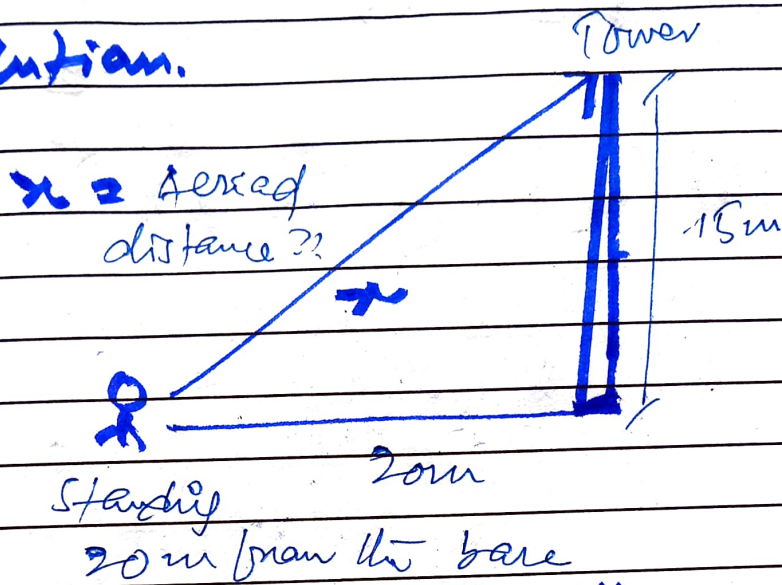 Tower
x = Aeriad
distance??
15m
x
20m
Standing
20m from the base